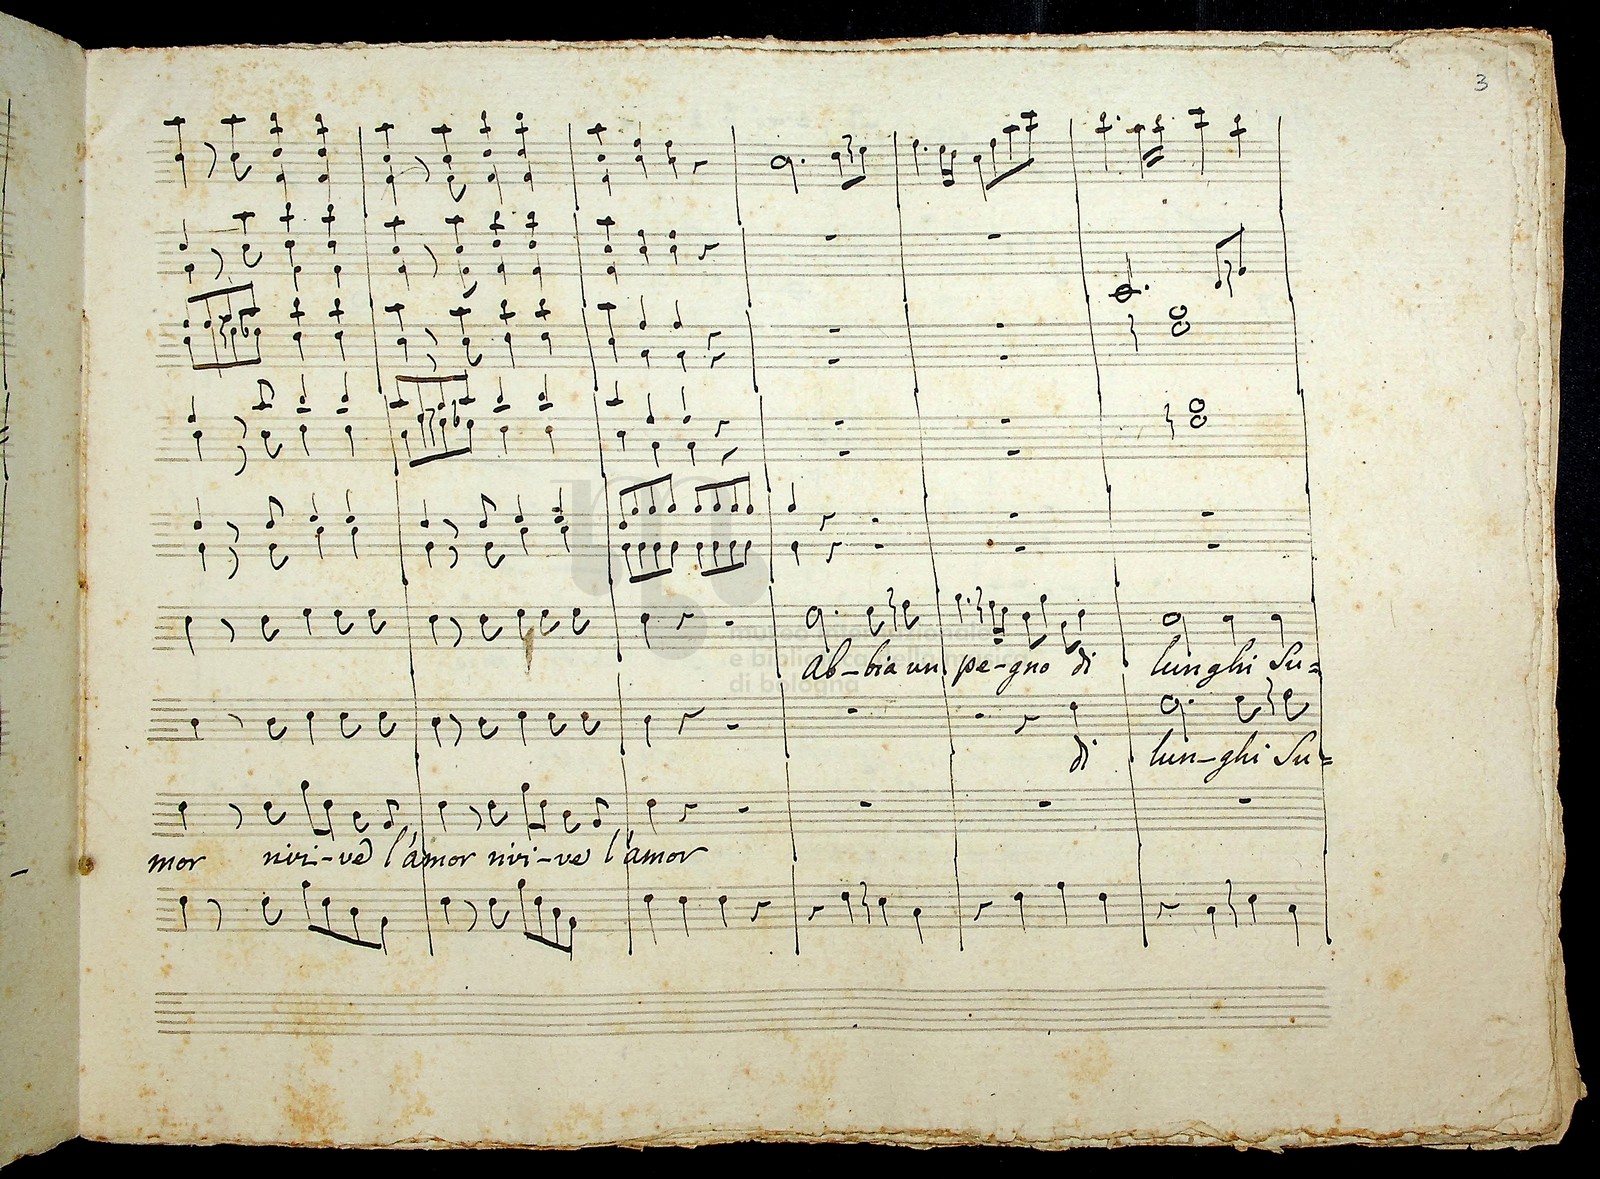 3
Ab-bia un pe-gno di lunghi Su=
di lun-ghi Su=
mor vivi-ve l'amor vivi-ve l'amor
e biblioteca della musica
di bologna